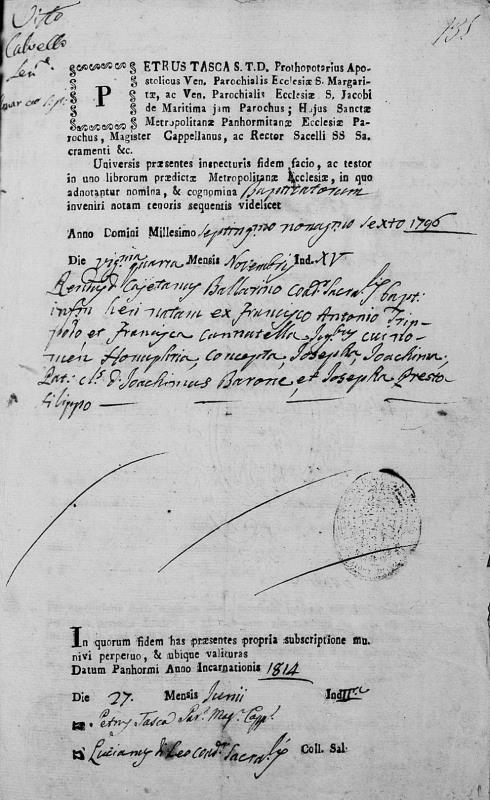 Visto
Calvello
135
PETRUS TASCA S. T. D. Prothonotarius Apo-
stolicus Ven. Parochialis Ecclesiæ S. Margari-
tæ, ac Ven. Parochialis Ecclesiæ S. Jacobi
de Maritima jam Parochus; Hujus Sanctæ
Metropolitanæ Panhormitanæ Ecclesiæ Pa-
rochus, Magister Cappellanus, ac Rector Sacelli SS Sa-
cramenti &c.
Universis præsentes inspecturis fidem facio, ac testor
in uno librorum prædictæ Metropolitanæ Ecclesiæ, in quo
adnotantur nomina, & cognomina Baptizatorum
inveniri notam tenoris sequentis videlicet
Anno Domini Millesimo septingmo nonagmo sexto 1796
Die vigma quarta Mensis Novembris Ind. XV
Cajetanus Ballarino bapt:
infm heri natam ex Francisco Antonio Trip-
polo et Francisca Cannatella cui no-
men concepta, Josepha Joachina,
D. Joachimus Barone, et Josepha Presto
Filippo
In quorum fidem has præsentes propria subscriptione mu-
nivi perpetuo, & ubique valituras
Datum Panhormi Anno Incarnationis 1814
Die 27. Mensis Junii Ind II.a
Petrus Tasca Par. Mag. Capp.
Lucianus de Leo Coll. Sal.